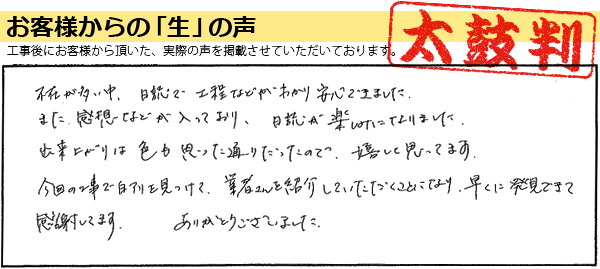 お客様からの「生」の声
工事後にお客様から頂いた、実際の声を掲載させていただいております。
太鼓判
不在が多い中、日誌で工程などがわかり安心できました。
また、感想などが入っており、日誌が楽しみになりました。
出来上がりは色も思った通りだったので、嬉しく思ってます。
今回の工事で白アリを見つけて、業者さんを紹介していただくことになり、早くに発見できて
感謝してます。 ありがとうございました。